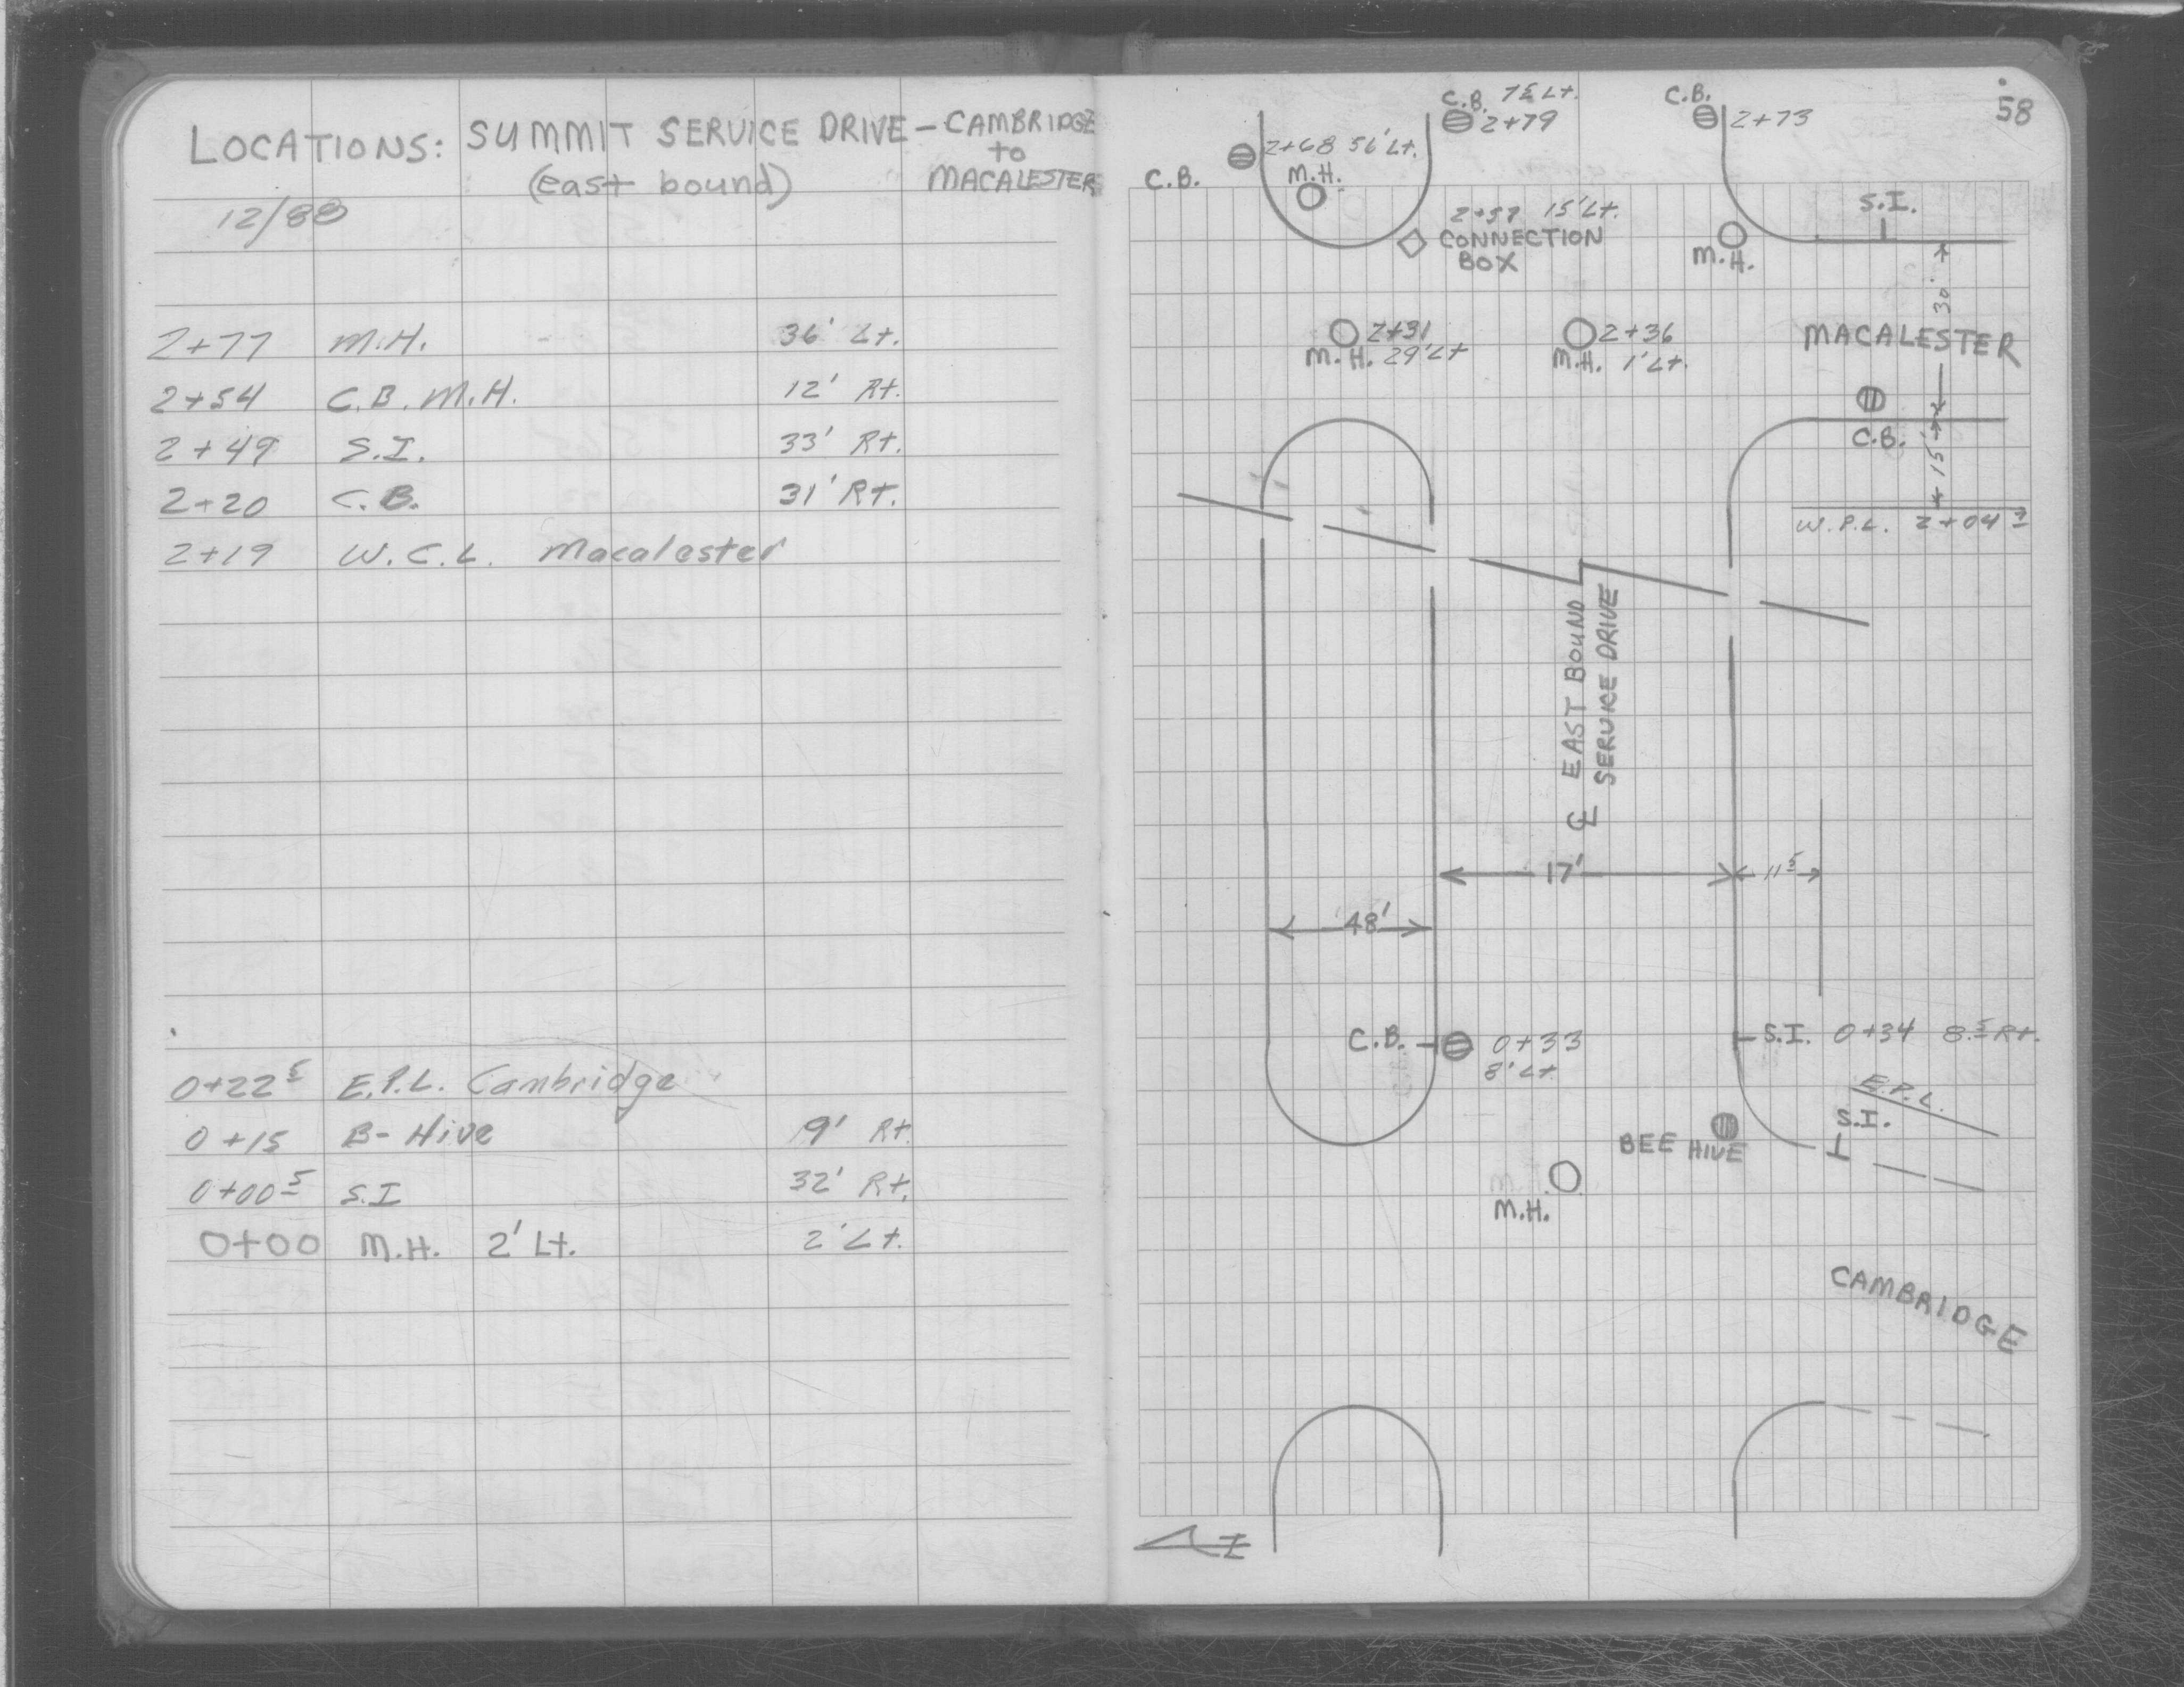 LOCATIONS: SUMMIT SERVICE DRIVE - CAMBRIDGE
to
(east bound) MACALESTER
12/88
2+77 M.H. 36' Lt.
2+54 C.B. M.H. 12' Rt.
2+49 S.I. 33' Rt.
2+20 C.B. 31' Rt.
2+19 W.C.L. Macalester
0+22⁵ E.P.L. Cambridge
0+15 B-Hive 9' Rt.
0+00⁵ S.I 32' Rt.
0+00 M.H. 2' Lt. 2' Lt.
58
C.B. 7⁵ Lt.
2+79
C.B.
2+73
2+68 56' Lt.
C.B.
M.H.
S.I.
2+57 15' Lt.
CONNECTION
BOX
M.H.
30'
2+31
M.H. 29' Lt
2+36
M.H. 1' Lt.
MACALESTER
C.B.
15'
W.P.L. 2+04
℄ EAST BOUND
SERVICE DRIVE
17'
11⁵
48'
C.B. 0+33
8' Lt
S.I. 0+34 8.⁵ Rt.
E.P.L.
S.I.
BEE HIVE
M.H.
CAMBRIDGE